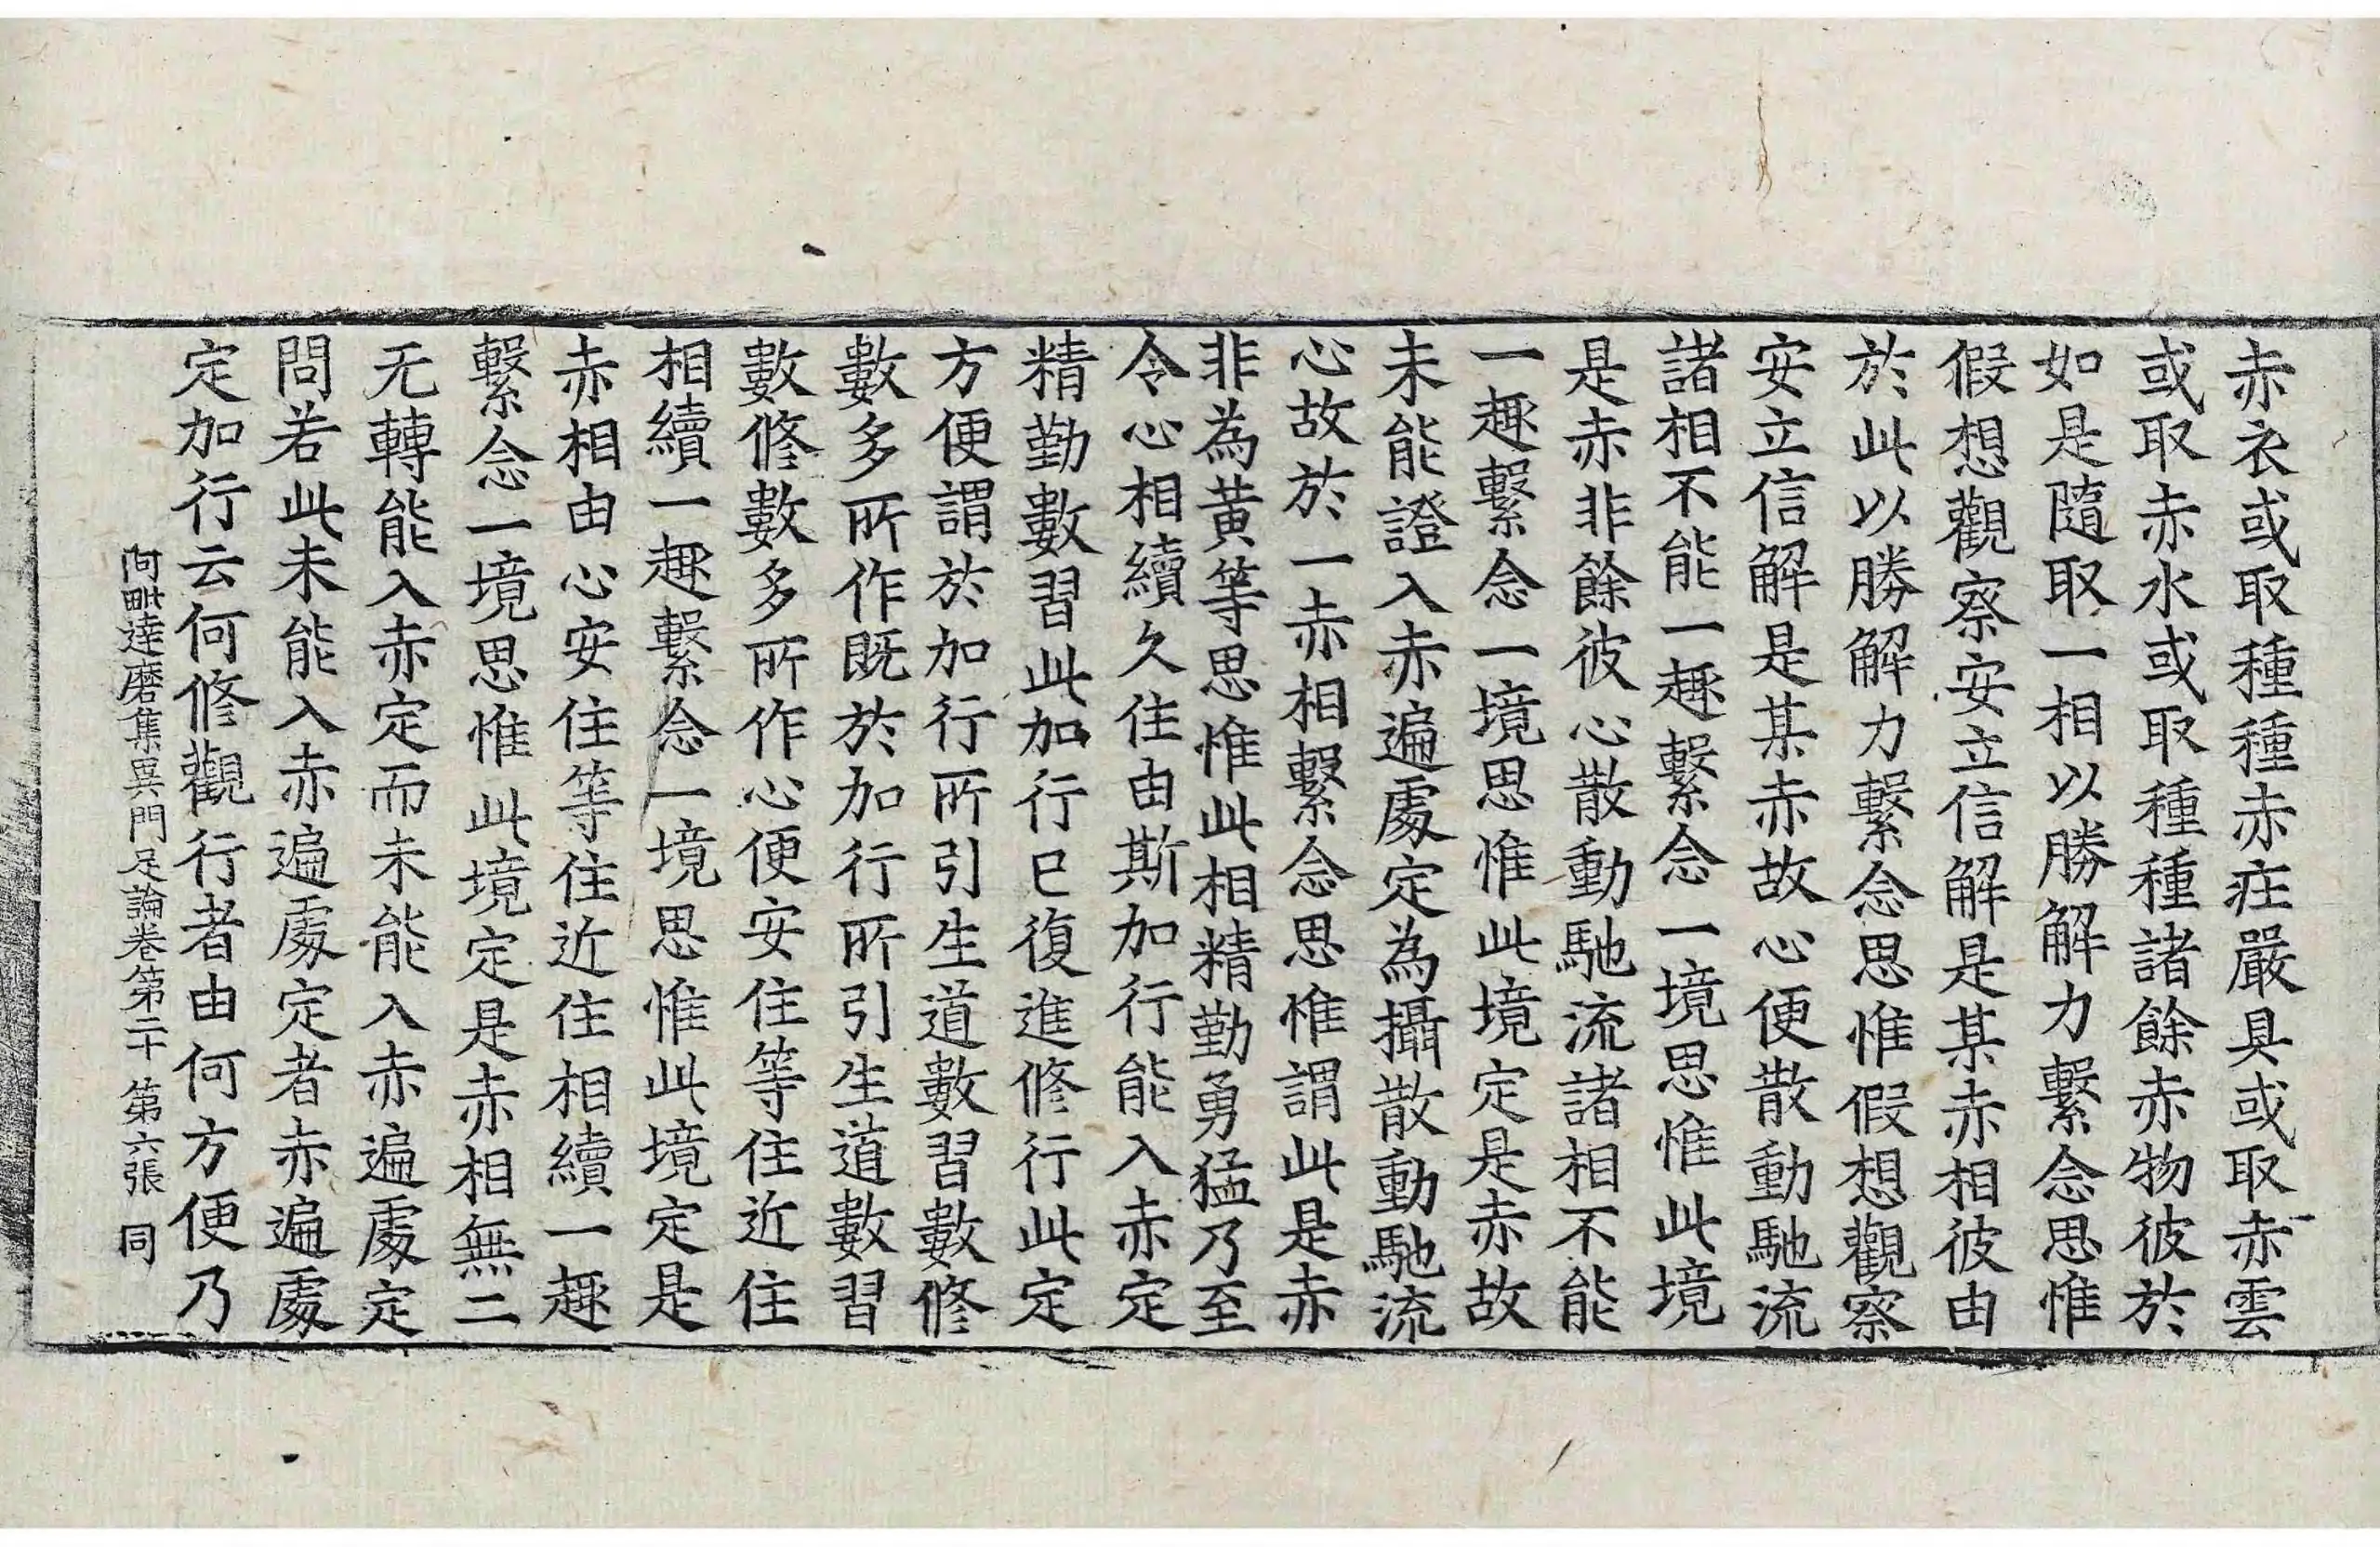 赤衣或取種種赤莊嚴具或取赤雲
或取赤水或取種種諸餘赤物彼於
如是隨取一相以勝解力繫念思惟
假想觀察安立信解是某赤相彼由
於此以勝解力繫念思惟假想觀察
安立信解是某赤故心便散動馳流
諸相不能一趣繫念一境思惟此境
是赤非餘彼心散動馳流諸相不能
一趣繫念一境思惟此境定是赤故
未能證入赤遍處定為攝散動馳流
心故於一赤相繫念思惟謂此是赤
非為黃等思惟此相精勤勇猛乃至
令心相續久住由斯加行能入赤定
精勤數習此加行已復進修行此定
方便謂於加行所引生道數習數修
數多所作既於加行所引生道數習
數修數多所作心便安住等住近住
相續一趣繫念一境思惟此境定是
赤相由心安住等住近住相續一趣
繫念一境思惟此境定是赤相無二
无轉能入赤定而未能入赤遍處定
問若此未能入赤遍處定者赤遍處
定加行云何修觀行者由何方便乃
阿毗達磨集異門足論卷第二十 第六張 同